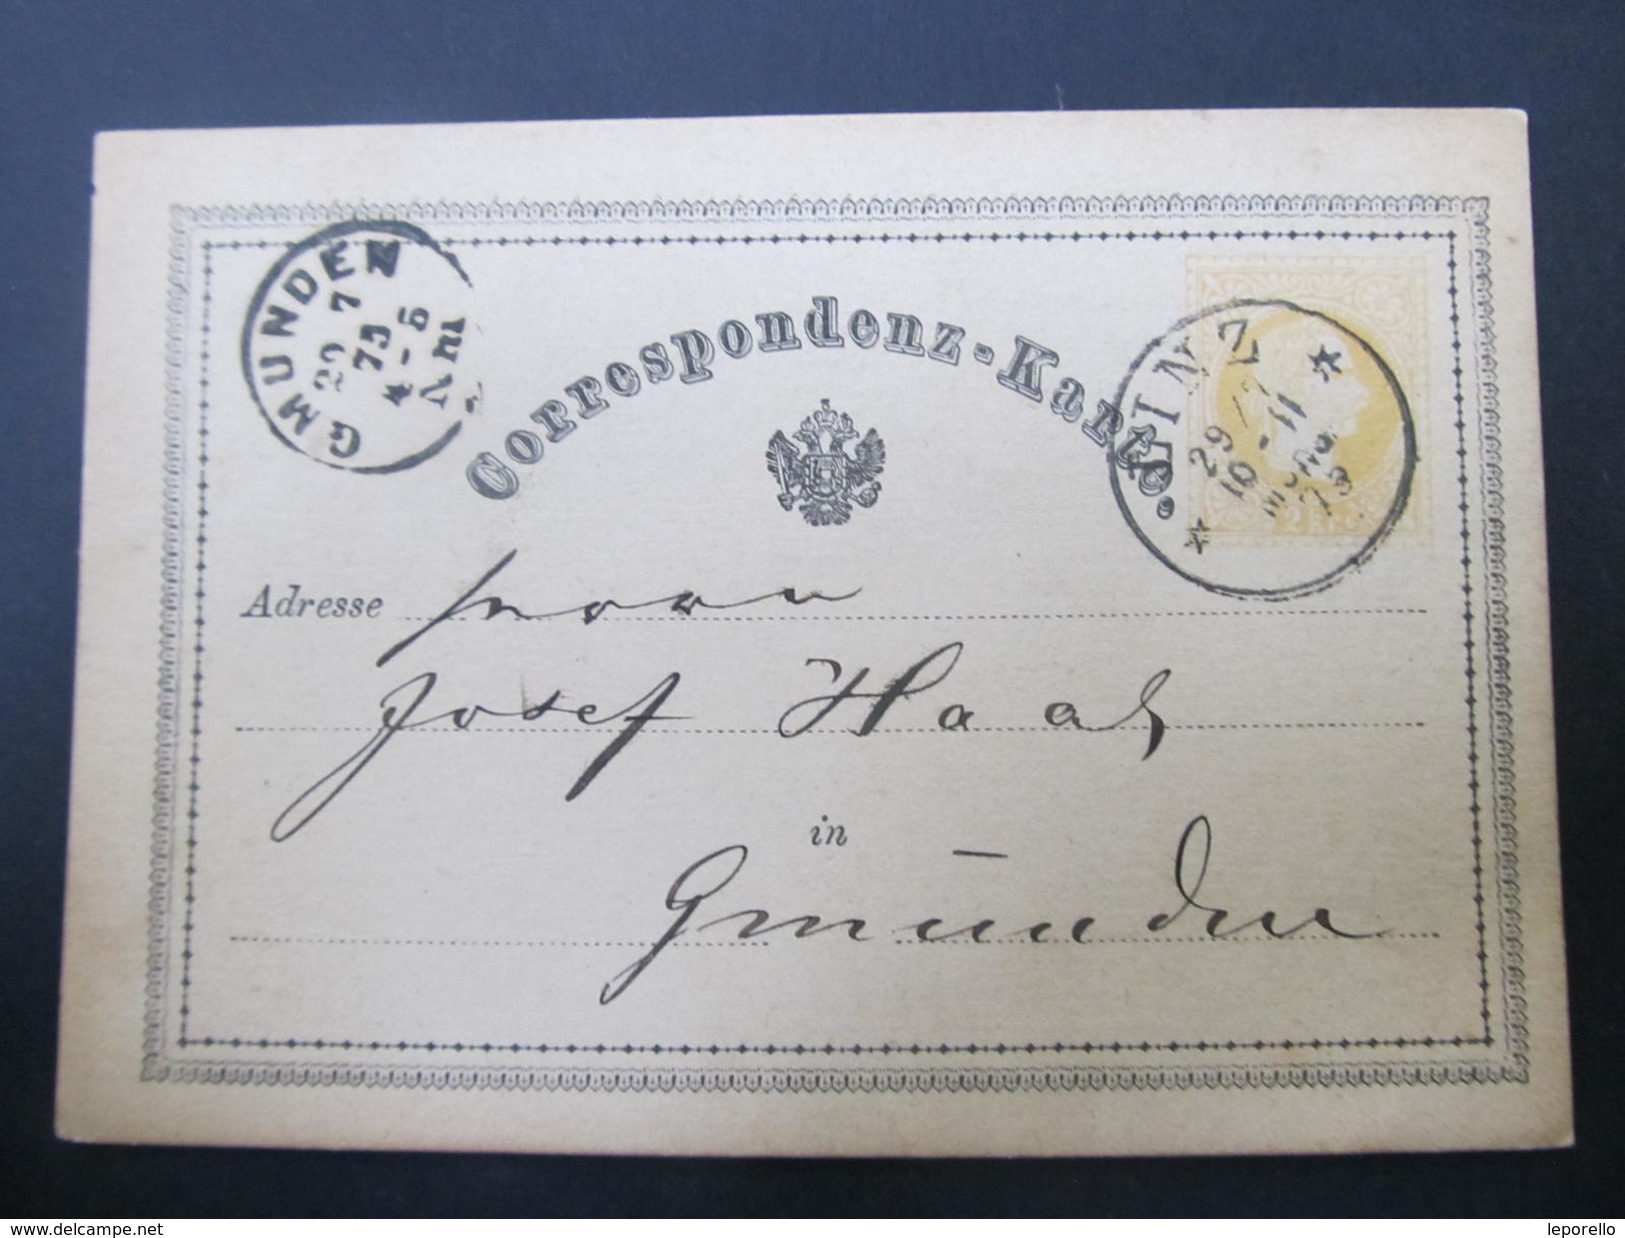 GMUNDEN
29 7
75
4-5
Correspondenz-Karte.
LINZ
29
10-11
75
2 Kr.
Adresse Herrn
Josef Haas
in
Gmunden
delcampe.net
leporello